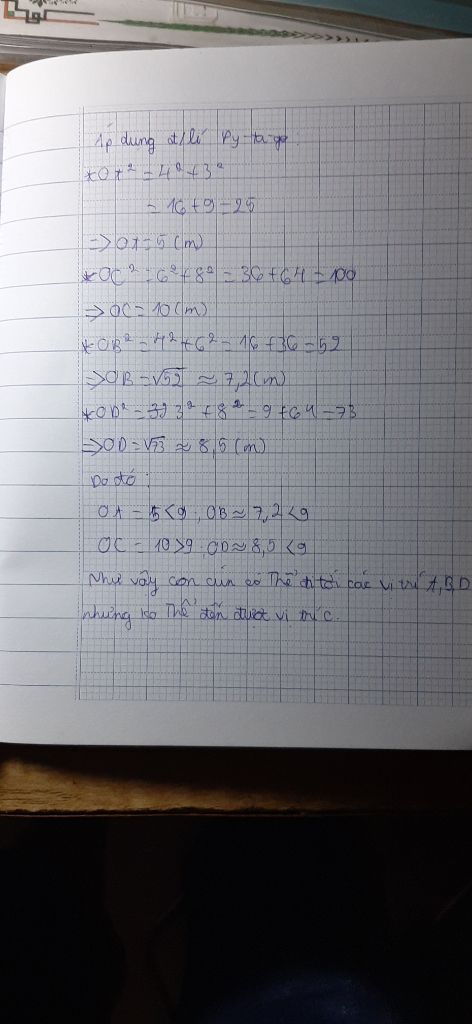 Áp dụng đ/lí Py-ta-go:
*OA² = 4² + 3²
= 16 + 9 = 25
=> OA = 5 (m)
*OC² = 6² + 8² = 36 + 64 = 100
=> OC = 10 (m)
*OB² = 4² + 6² = 16 + 36 = 52
=> OB = √52 ≈ 7,2 (m)
*OD² = 3² + 8² = 9 + 64 = 73
=> OD = √73 ≈ 8,5 (m)
Do đó:
OA = 5 < 9 ; OB ≈ 7,2 < 9
OC = 10 > 9 ; OD ≈ 8,5 < 9
Như vậy con cún có thể đi tới các vị trí A, B, D
nhưng ko thể đến được vị trí C.